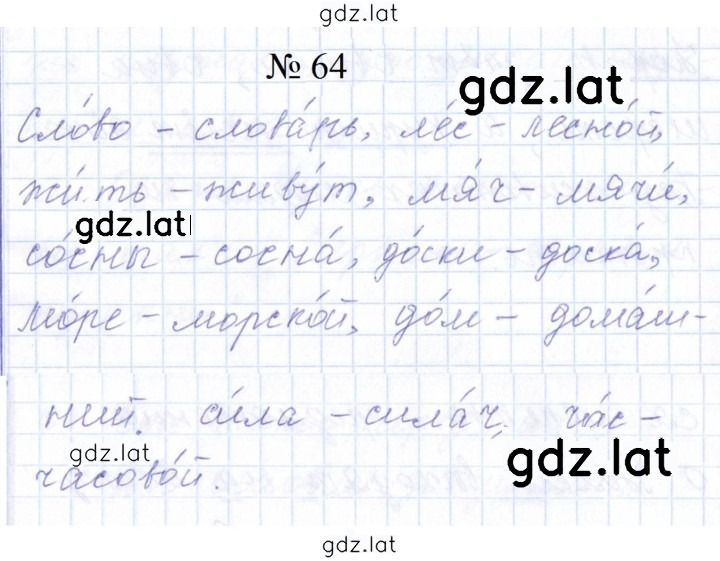 gdz.lat
№ 64
gdz.lat
Сло́во – слова́рь, ле́с – лесно́й,
жи́ть – живу́т, мя́ч – мячи́,
gdz.lat
со́сны – сосна́, до́ски – доска́,
мо́ре – морско́й, до́м – дома́ш-
ний. си́ла – сила́ч, ча́с –
gdz.lat
gdz.lat
часово́й.
gdz.lat